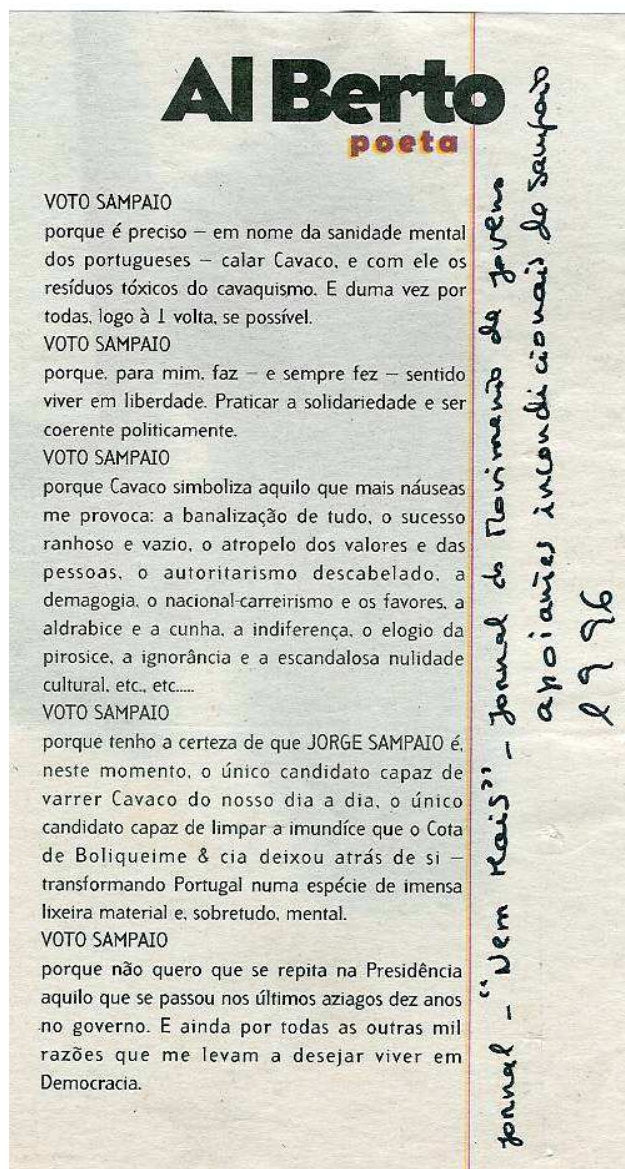 Al Berto
poeta
VOTO SAMPAIO
porque é preciso – em nome da sanidade mental
dos portugueses – calar Cavaco, e com ele os
resíduos tóxicos do cavaquismo. E duma vez por
todas, logo à 1 volta, se possível.
VOTO SAMPAIO
porque, para mim, faz – e sempre fez – sentido
viver em liberdade. Praticar a solidariedade e ser
coerente politicamente.
VOTO SAMPAIO
porque Cavaco simboliza aquilo que mais náuseas
me provoca: a banalização de tudo, o sucesso
ranhoso e vazio, o atropelo dos valores e das
pessoas, o autoritarismo descabelado, a
demagogia, o nacional-carreirismo e os favores, a
aldrabice e a cunha, a indiferença, o elogio da
pirosice, a ignorância e a escandalosa nulidade
cultural, etc., etc.....
VOTO SAMPAIO
porque tenho a certeza de que JORGE SAMPAIO é,
neste momento, o único candidato capaz de
varrer Cavaco do nosso dia a dia, o único
candidato capaz de limpar a imundíce que o Cota
de Boliqueime & cia deixou atrás de si –
transformando Portugal numa espécie de imensa
lixeira material e, sobretudo, mental.
VOTO SAMPAIO
porque não quero que se repita na Presidência
aquilo que se passou nos últimos aziagos dez anos
no governo. E ainda por todas as outras mil
razões que me levam a desejar viver em
Democracia.
Jornal – "Nem Mais" – Jornal do Movimento de jovens
apoiantes incondicionais de Sampaio
1996